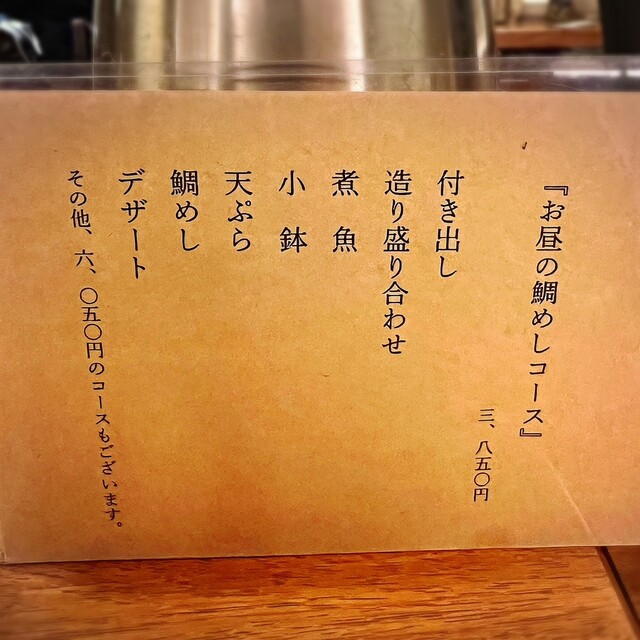 『お昼の鯛めしコース』
三、八五〇円
付き出し
造り盛り合わせ
煮魚
小鉢
天ぷら
鯛めし
デザート
その他、六、〇五〇円のコースもございます。